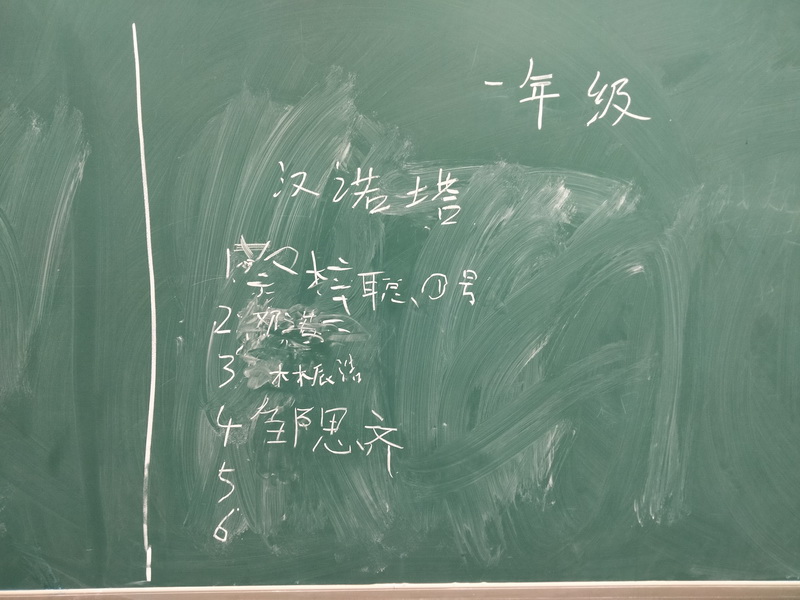 一年级
汉诺塔
1 蔡梓聪、①号
2 郑浩一
3 林振浩
4 邹思齐
5
6